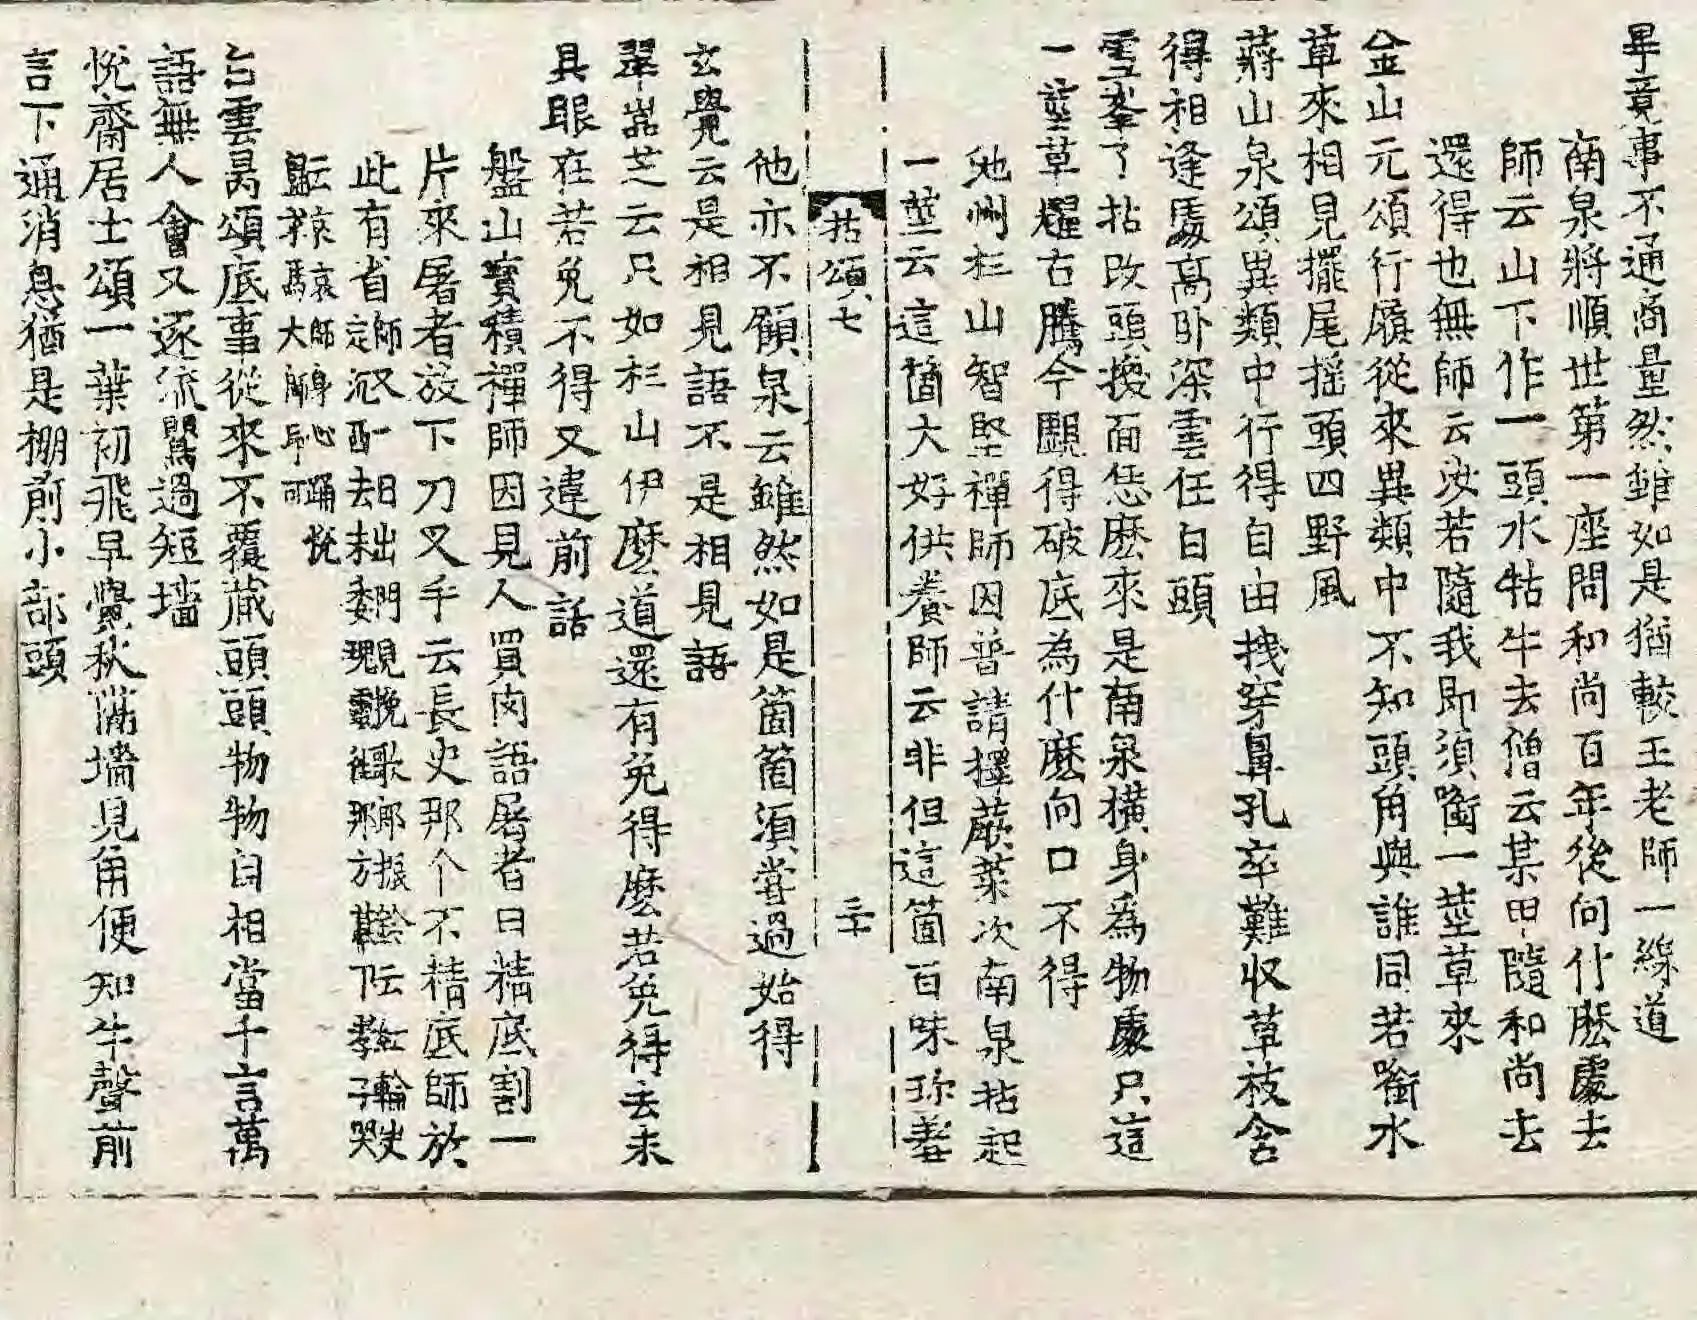 畢竟事不通商量然雖如是猶較王老師一線道
南泉將順世第一座問和尚百年後向什麽處去
師云山下作一頭水牯牛去僧云某甲隨和尚去
還得也無師云汝若隨我即須㘅一莖草來
金山元頌行履從來異類中不知頭角與誰同若㘅水
草來相見擺尾搖頭四野風
蔣山泉頌異類中行得自由拽穿鼻孔卒難収草枝含
得相逢處高卧深雲任白頭
雪峯了拈改頭換面恁麽來是南泉橫身爲物處只這
一莖草耀古騰今覷得破底為什麽向口不得
池州杉山智堅禪師因普請擇蕨菜次南泉拈起
一莖云這箇大好供養師云非但這箇百味珍羞
拈頌七
三十
他亦不顧泉云雖然如是箇箇須甞過始得
玄覺云是相見語不是相見語
翠嵓芝云只如杉山伊麽道還有免得麽若免得去未
具眼在若免不得又違前話
盤山寶積禪師因見人買肉語屠者曰精底割一
片來屠者放下刀叉手云長史那个不精底師放
此有省師又一日出門見挽歌郎振鈴云紅輪
定沉西去未委魂靈往那方幕下孝子哭
云哀哀師身心踊悅
馬大師印可
白雲昺頌底事從來不覆藏頭頭物物自相當千言萬
語無人會又逐流鸎過短墻
悅齋居士頌一葉初飛早覺秋滿墻見角便知牛聲前
言下通消息猶是棚前小部頭